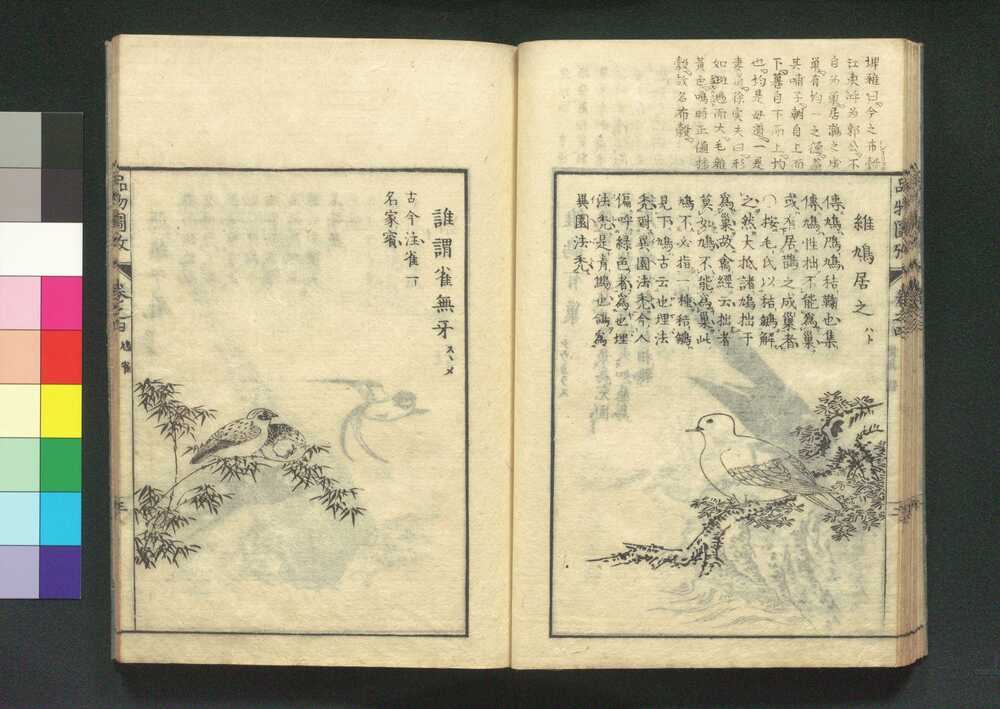 埤雅曰今之布穀
江東呼為郭公不
自為巢居鵲之成
巢有均一之德
其哺子朝自上而
下暮自下而上均
也均是母道一是
妻道徐雪夫曰形
如鳩而大毛雜
黃色鳴時正值播
穀故名布穀
維鳩居之 ハト
傳鳩鳲鳩秸鞠也集
傳鳩性拙不能為巢
或有居鵲之成巢者
○按毛氏以秸鞠解
之然大抵諸鳩拙于
為巢故禽經云拙者
莫如鳩不能為巢此
鳩不必指一種秸鞠
見下鳩古云也理法
禿對異國法禿今人
偏呼綠色者為也理
法禿是青鶴也謂為
異國法禿
品物圖攷
卷之四
誰謂雀無牙 スヽメ
古今注雀一
名家賓
品物圖攷
卷之四
鳩雀
三